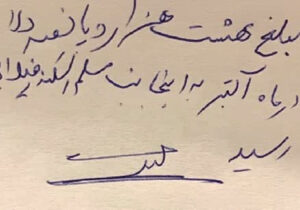 مبلغ هشت هزار و پانصد دلا
در ماه اکتبر به اینجانب مسلم اسکندر فیلا
رسید